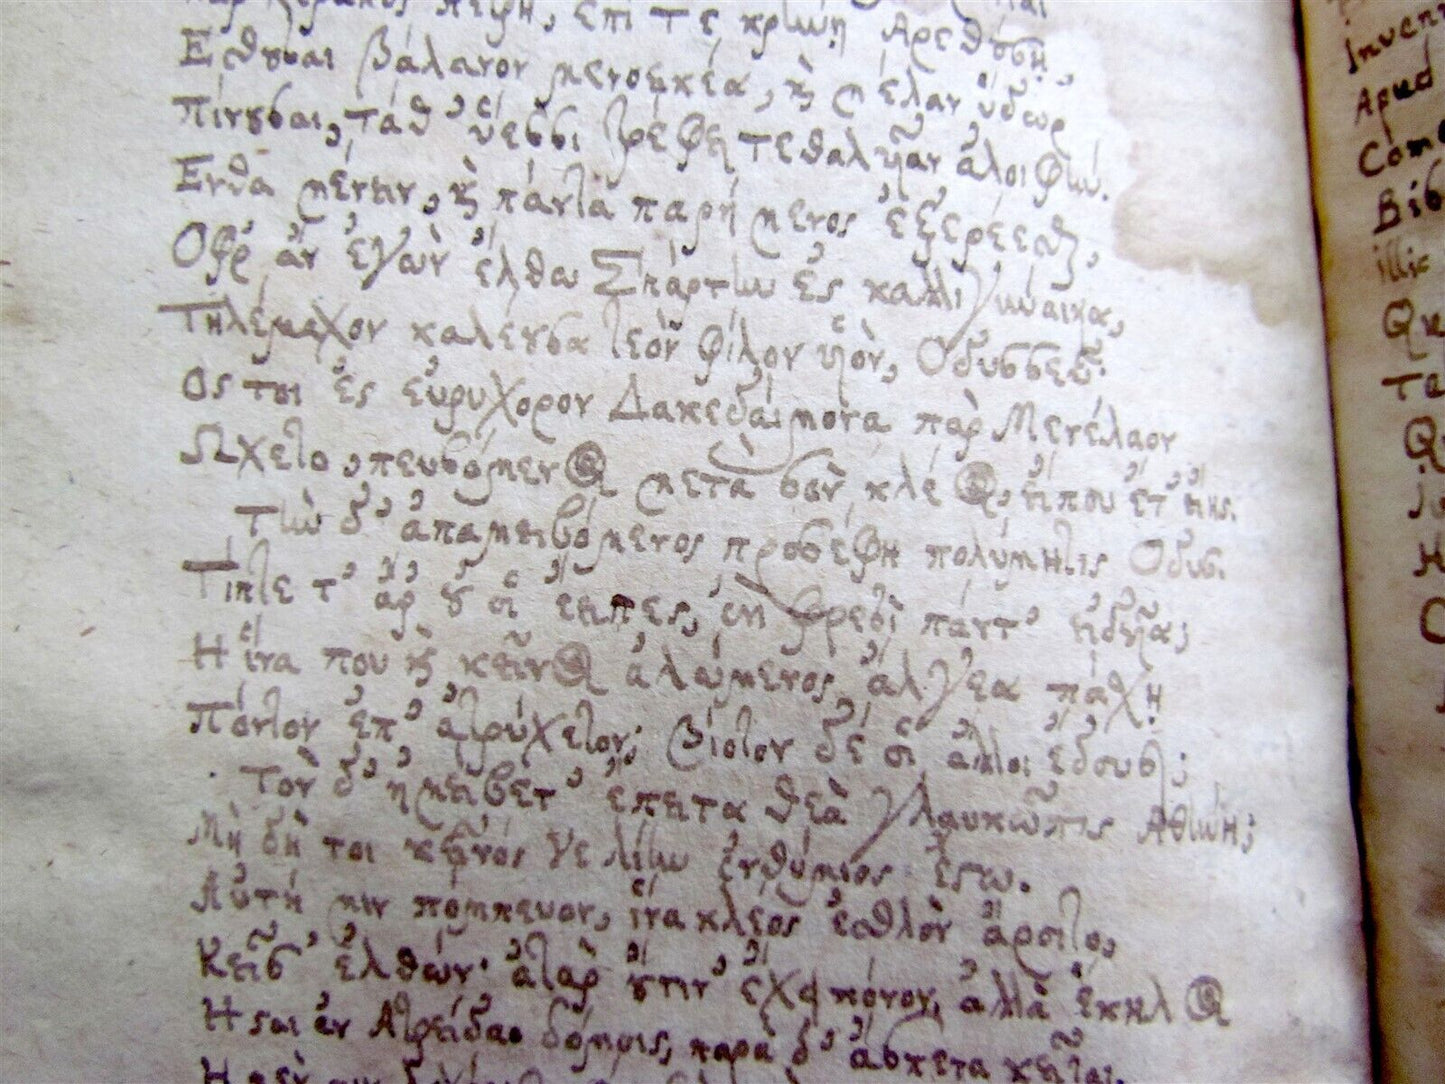 πὰρ Κόρακος πέτρῃ, ἐπί τε κρήνῃ Ἀρεθούσῃ,
Ἔσθουσαι βάλανον μενοεικέα, καὶ μέλαν ὕδωρ
Πίνουσαι, τάθ' ὕεσσι τρέφει τεθαλυῖαν ἀλοιφήν.
Ἔνθα μένειν, καὶ πάντα παρήμενος ἐξερέεσθαι,
Ὄφρ' ἂν ἐγὼν ἔλθω Σπάρτην ἐς καλλιγύναικα,
Τηλέμαχον καλέουσα τεὸν φίλον υἱόν, Ὀδυσσεῦ.
Ὅς τοι ἐς εὐρύχορον Λακεδαίμονα πὰρ Μενέλαον
Ὤχετο, πευσόμενος μετὰ σὸν κλέος, εἴ που ἔτ' εἴης.
Τὴν δ' ἀπαμειβόμενος προσέφη πολύμητις Ὀδυσ.
Τίπτε τ' ἄρ' οὔ οἱ ἔειπες, ἐνὶ φρεσὶ πάντ' εἰδυῖα;
Ἦ ἵνα που καὶ κεῖνος ἀλώμενος ἄλγεα πάσχῃ
Πόντον ἐπ' ἀτρύγετον; βίοτον δέ οἱ ἄλλοι ἔδουσι;
Τὸν δ' ἠμείβετ' ἔπειτα θεὰ γλαυκῶπις Ἀθήνη;
Μὴ δή τοι κεῖνός γε λίην ἐνθύμιος ἔστω.
Αὐτή μιν πόμπευον, ἵνα κλέος ἐσθλὸν ἄροιτο,
Κεῖσ' ἐλθών· ἀτὰρ οὔτιν' ἔχει πόνον, ἀλλὰ ἕκηλος
Ἧσται ἐν Ἀτρείδαο δόμοις, παρὰ δ' ἄσπετα κεῖται.
Inven
Apud
Com
Βίβ
illic
Qu